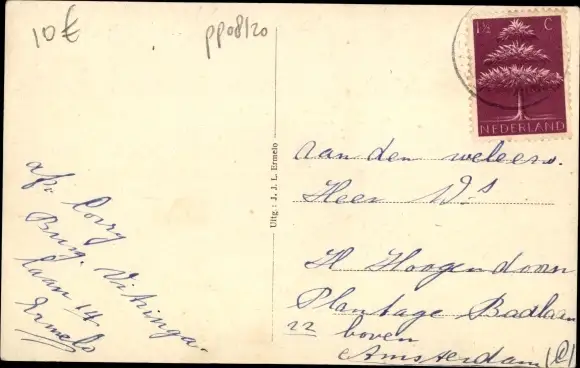 10€
pp08/20
1½ C
NEDERLAND
Uitg.: J. J. L. Ermelo
afz. Corry
Burg. Vitringa
laan 14
Ermelo
aan den weleerw.
Heer Ds
H Hoogendoorn
Plantage Badlaan
22 boven
Amsterdam (C)